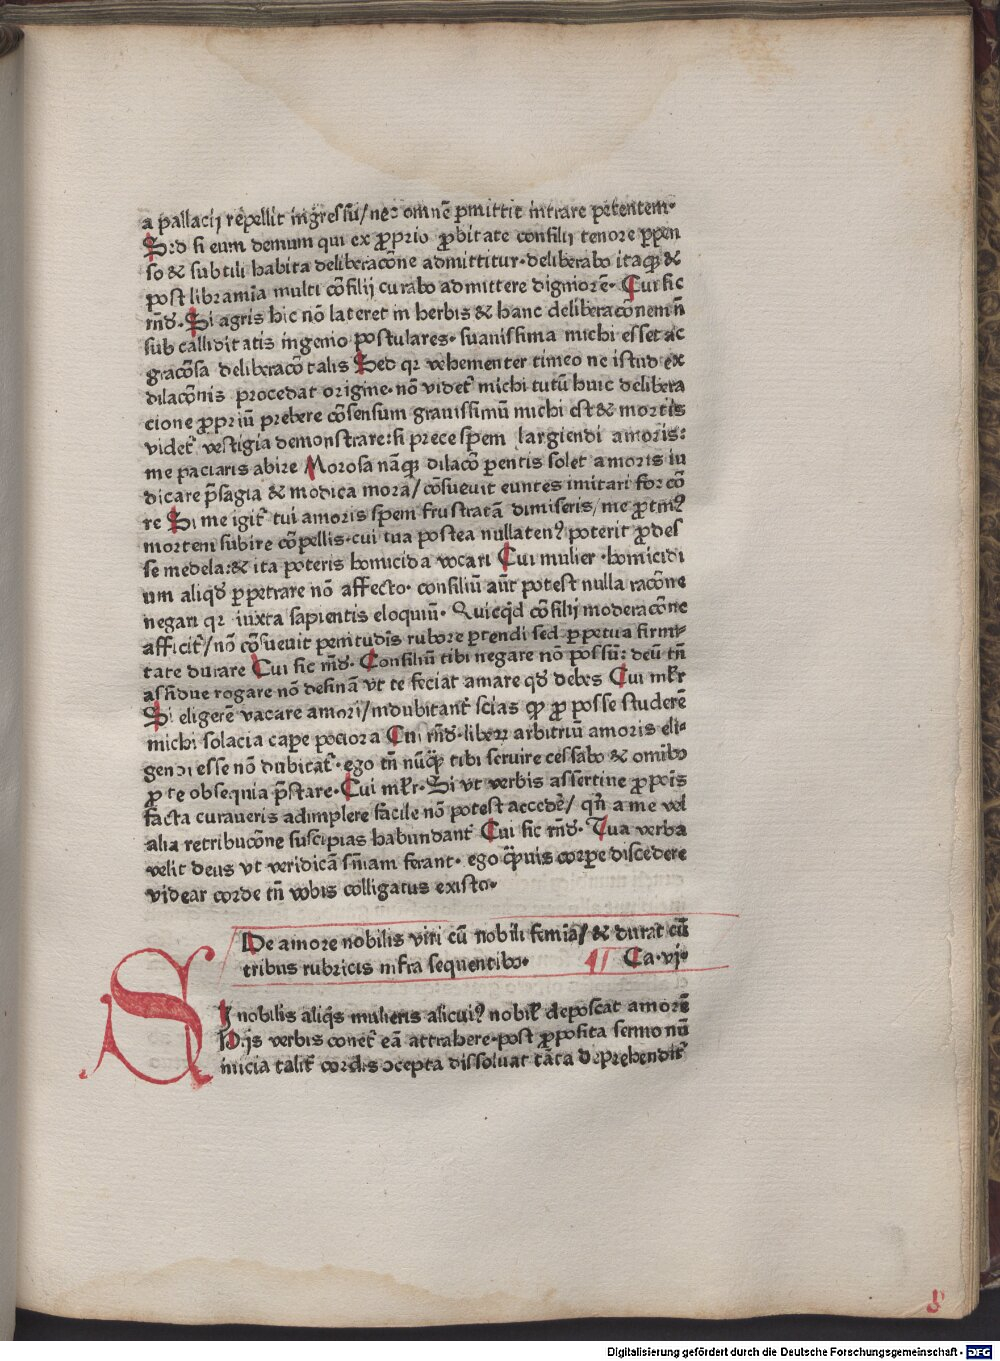 a pallacij repellit ingressū/nec omnē pmittit intrare petentem·
Sed si eum demum qui ex ꝓprio ꝓbitate consilij tenore ꝑpen
so & subtili habita deliberacōne admittitur·deliberabo itaqꝫ &
post libramīa multi cōsilij curabo admittere digniorē· Cui sic
rn̄d̄· Si agris hic nō lateret in herbis & hanc deliberacōnem n̄
sub calliditatis ingenio postulares· suauissima michi esset ac
gracōsa deliberacō talis Sed qꝛ vehementer timeo ne istud ex
dilacōnis procedat origine·nō videt᷑ michi tutū huic delibera
cione ꝓpriū prebere cōsensum grauissimū michi est & mortis
videt᷑ vestigia demonstrare:si prece spem largiendi amoris:
me paciaris abire Morosa nāqꝫ dilacō ꝑentis solet amoris iu
dicare p̄sagia & modica mora/cōsueuit euntes imitari for cō
re Si me igit᷑ tui amoris spem frustratā dimiseris/me ꝓtinꝰ
mortem subire cōpellis·cui tua postea nullatenꝰ poterit ꝓdes
se medela:& ita poteris homicida vocari Cui mulier ·homicidi
um aliqd̄ ꝑpetrare nō affecto· consiliū aūt potest nulla racōne
negari qꝛ iuxta sapientis eloquiū· Quicqd̄ cōsilij moderacōne
afficit᷑/nō cōsueuit penitudīs rubore ꝑtendi sed ꝑpetua firmi-
tate durare Cui sic rn̄d̄· Consiliū tibi negare nō possū: deū tn̄
assidue rogare nō desinā vt te feciat amare qd̄ debes Cui mlr̄
Si eligerē vacare amori/indubitant᷑ scias qꝫ ꝓ posse studerē
michi solacia capere pociora Cui rn̄d̄·liberꝫ arbitriū amoris eli-
gendi esse nō dubitat᷑·ego tn̄ nūqꝫ tibi seruire cessabo & omībꝰ
ꝓ te obsequia p̄stare· Cui mlr̄· Si vt verbis assertine ꝓponis
facta curaueris adimplere facile nō potest accedē/ qn̄ a me vel
alia retribucōne suscipias habundant᷑ Cui sic rn̄d̄· Tua verba
velit deus vt veridicā sn̄iam ferant· ego qꝫuis corꝑe discedere
videar corde tn̄ vobis colligatus existo·
De amore nobilis viri cū nobili femīa/ & durat cū
tribus rubricis infra sequentibꝰ· Ca·vj·
SI nobilis aliq̄s mulieris alicuiꝰ nobil᷑ deposcat amorē
Hijs verbis conet᷑ eā attrahere·post ꝓposita sermonū
inicia talit᷑ cordis ɔcepta dissoluat tāta deprehendit᷑
Digitalisierung gefördert durch die Deutsche Forschungsgemeinschaft - DFG